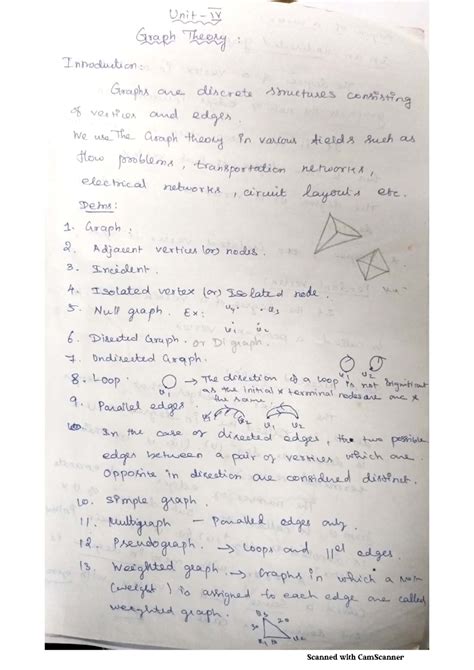 Unit - IV
Graph Theory :
Introduction:
Graphs are discrete structures consisting
of vertices and edges.
We use The Graph theory in various fields such as
flow problems, transportation networks,
electrical networks, circuit layouts etc.
Defns:
1. Graph :
2. Adjacent vertices (or) nodes.
3. Incident.
4. Isolated vertex (or) Isolated node.
5. Null graph. Ex: v4. . v3
v1 v2
6. Directed Graph. or Di graph.
7. Undirected Graph.
8. Loop v1 → The direction of a loop is not significant
as the initial & terminal nodes are one &
the same.
v1 v2
9. Parallel edges
v1 v2
10. In the case of directed edges, the two possible
edges between a pair of vertices which are
opposite in direction are considered distinct.
10. Simple graph.
11. Multigraph - Parallel edges only.
12. Pseudograph. → Loops and ||el edges.
13. Weighted graph → Graphs in which a
(weight) is assigned to each edge are called
weighted graph.
20
v2
Scanned with CamScanner